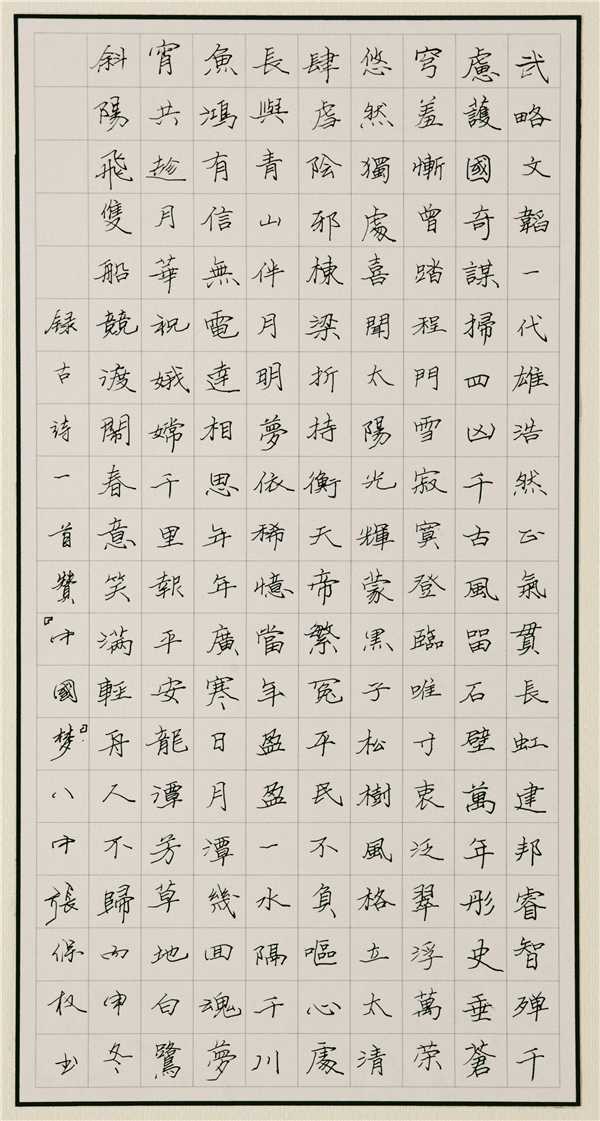 武略文韜一代雄浩然正氣貫長虹建邦睿智殫千
慮護國奇謀掃四凶千古風留石壁萬年彤史垂蒼
穹羞慚曾踏程門雪寂寞登臨唯寸衷泛翠浮萬荣
悠然獨處喜聞太陽光輝蒙黑子松樹風格立太清
肆虐陰邪棟梁折持衡天帝繁冤平民不負嘔心處
長與青山伴月明夢依稀憶當年盈盈一水隔千川
魚鴻有信無電達相思年年廣寒日月潭幾回魂夢
宵共趁月華祝娥嫦千里報平安龍潭芳草地白鷺
斜陽飛隻船競渡鬧春意笑滿輕舟人不歸丙申冬
録古詩一首贊『中國梦』八中張保权书